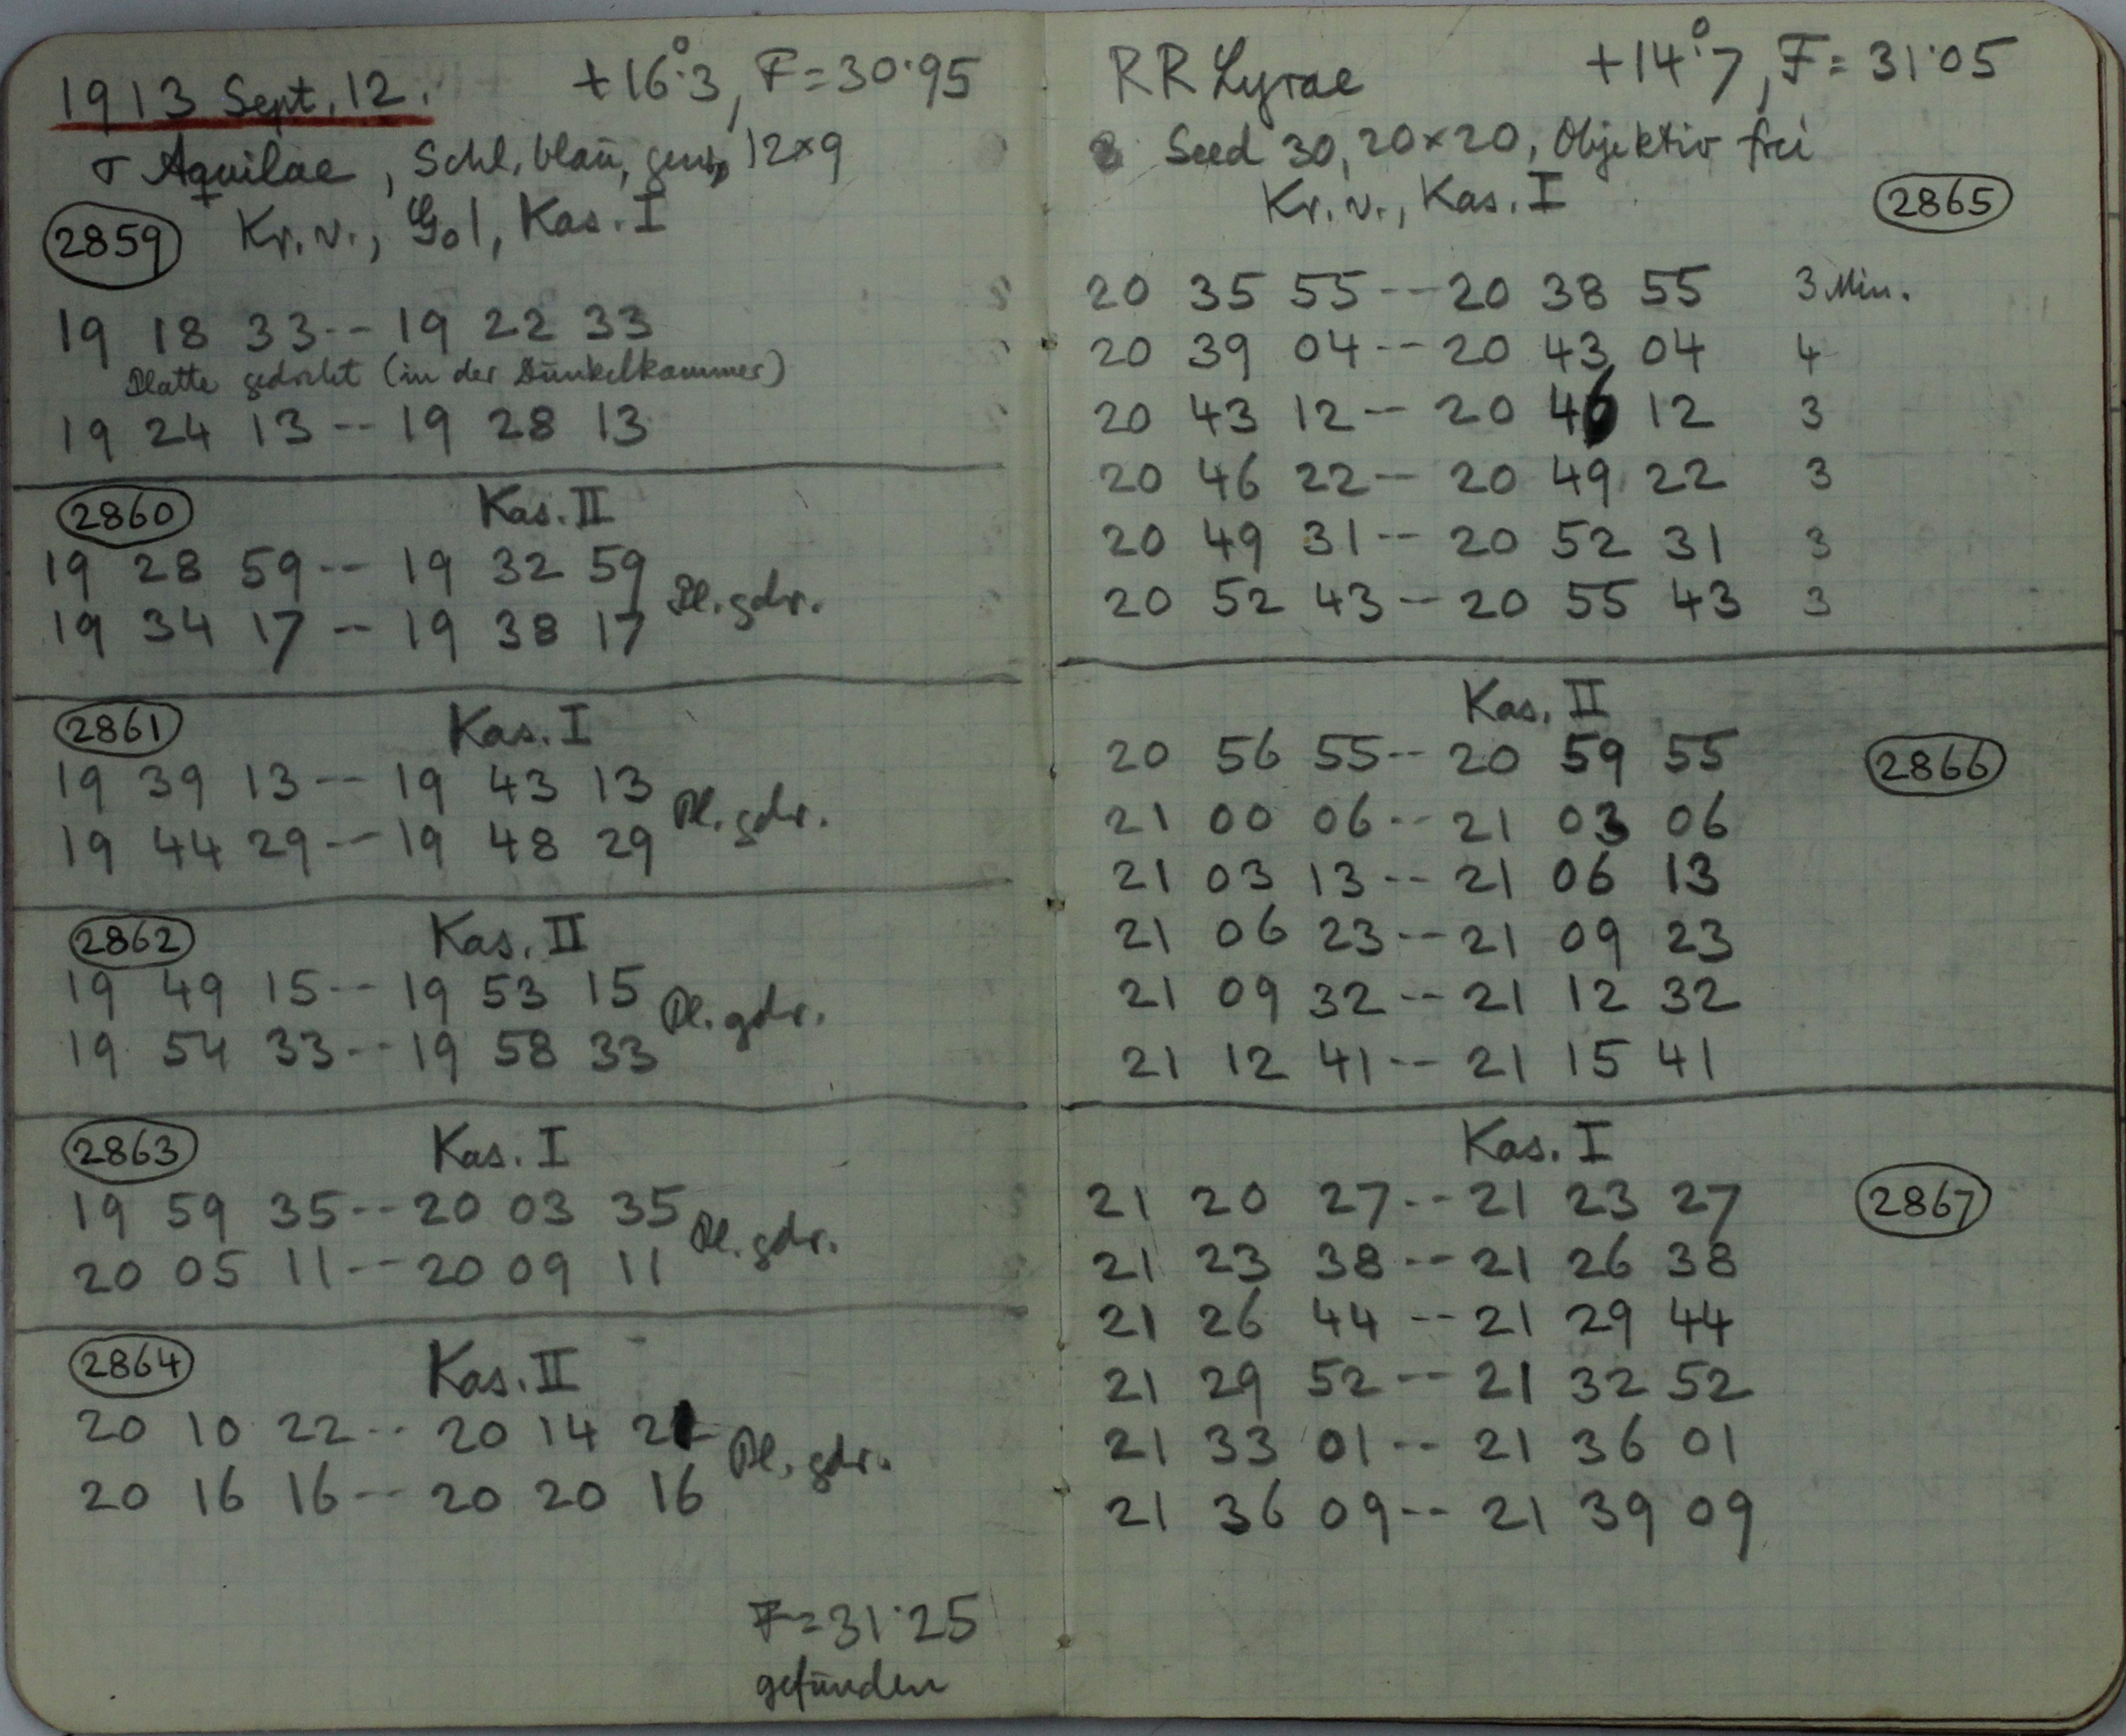 1913 Sept. 12. +16°.3, F=30.95
σ Aquilae, Schl. blau, 12×9
2859 Kr. v., G01, Kas. I
19 18 33 -- 19 22 33
Platte gedreht (in der Dunkelkammer)
19 24 13 -- 19 28 13
2860 Kas. II
19 28 59 -- 19 32 59
Pl. gdr.
19 34 17 -- 19 38 17
2861 Kas. I
19 39 13 -- 19 43 13
Pl. gdr.
19 44 29 -- 19 48 29
2862 Kas. II
19 49 15 -- 19 53 15
Pl. gdr.
19 54 33 -- 19 58 33
2863 Kas. I
19 59 35 -- 20 03 35
Pl. gdr.
20 05 11 -- 20 09 11
2864 Kas. II
20 10 22 -- 20 14 22
Pl. gdr.
20 16 16 -- 20 20 16
F=31.25
gefunden
RR Lyrae +14°.7, F=31.05
Seed 30, 20×20, Objektiv frei
Kr. v., Kas. I 2865
20 35 55 -- 20 38 55 3 Min.
20 39 04 -- 20 43 04 4
20 43 12 -- 20 46 12 3
20 46 22 -- 20 49 22 3
20 49 31 -- 20 52 31 3
20 52 43 -- 20 55 43 3
Kas. II
20 56 55 -- 20 59 55 2866
21 00 06 -- 21 03 06
21 03 13 -- 21 06 13
21 06 23 -- 21 09 23
21 09 32 -- 21 12 32
21 12 41 -- 21 15 41
Kas. I
21 20 27 -- 21 23 27 2867
21 23 38 -- 21 26 38
21 26 44 -- 21 29 44
21 29 52 -- 21 32 52
21 33 01 -- 21 36 01
21 36 09 -- 21 39 09